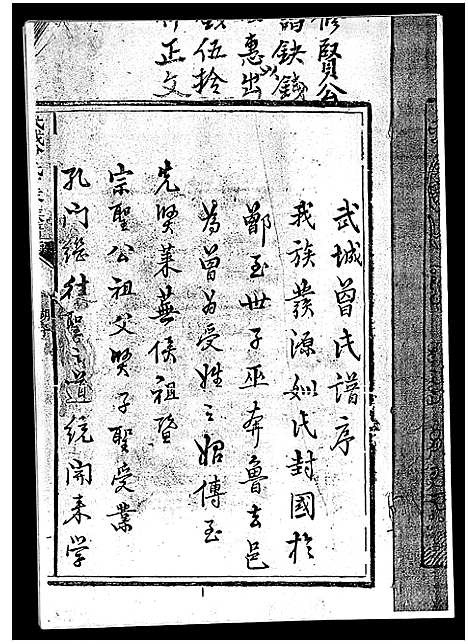 修賢公
鈌錢
惠出
伍拾
正文
武城曾氏譜序
我族發源姒氏封國於
鄫至世子巫奔魯去邑
為曾為受姓之始傳至
先賢萊蕪侯祖暨
宗聖公祖父賢子聖受業
孔門繼往聖之道統開来学